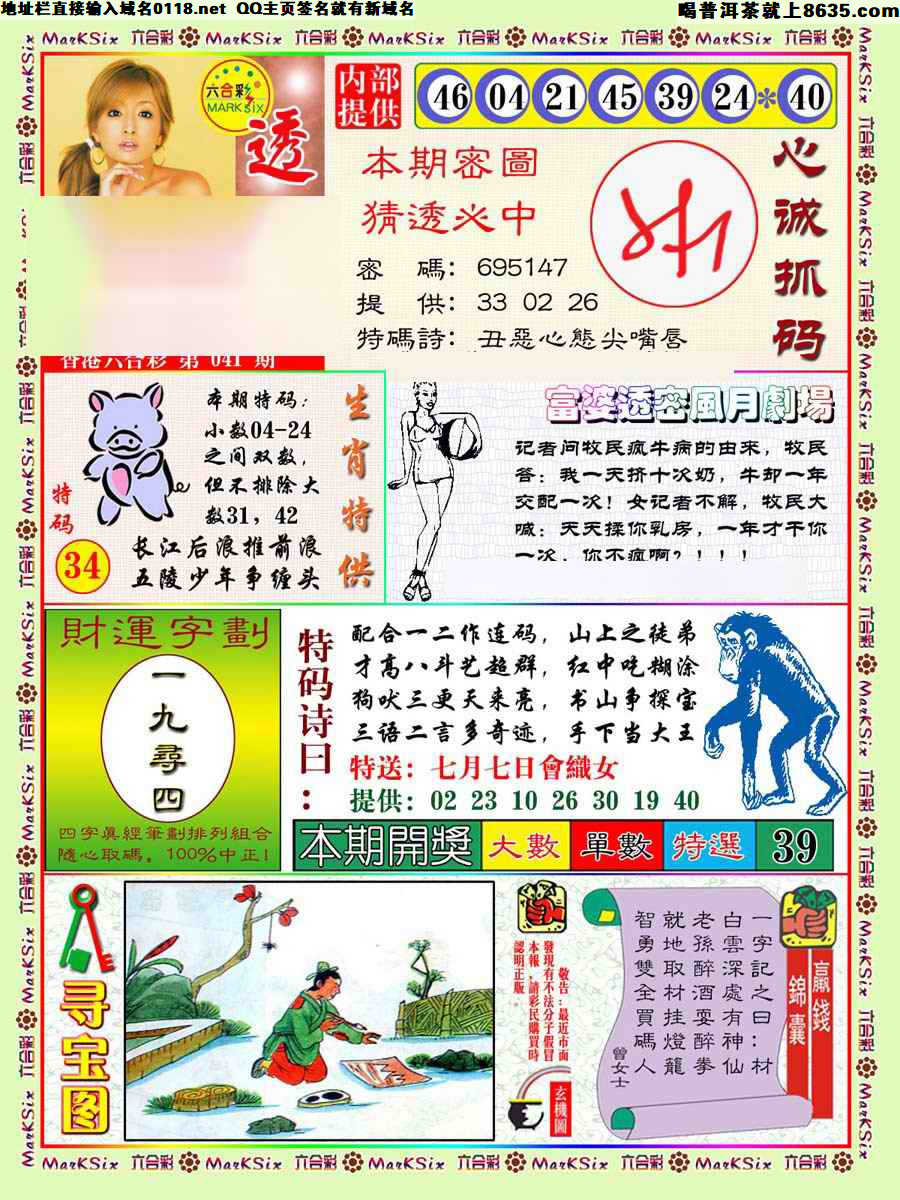 地址栏直接输入域名0118.net QQ主页签名就有新域名
喝普洱茶就上8635.com
MarKSix 六合彩 MarKSix 六合彩 MarKSix 六合彩 MarKSix 六合彩 MarKSix 六合彩
六合彩
MARK SIX
透
内部
提供
46 04 21 45 39 24*40
本期密圖
猜透必中
密 碼：695147
提 供：33 02 26
特碼詩：丑惡心態尖嘴唇
心诚抓码
香港六合彩 第 041 期
本期特码：
小数04-24
之间双数，
但不排除大
数31，42
长江后浪推前浪
五陵少年争缠头
特码
34
生肖特供
富婆透密風月劇場
记者问牧民疯牛病的由来，牧民
答：我一天挤十次奶，牛却一年
交配一次！女记者不解，牧民大
喊：天天揉你乳房，一年才干你
一次，你不疯啊？！！！
財運字劃
一九尋四
四字真經筆劃排列組合
隨心取碼，100%中正!
特码诗曰：
配合一二作连码，山上之徒弟
才高八斗艺超群，红中吃糊涂
狗吠三更天来亮，书山争探宝
三语二言多奇迹，手下当大王
特送：七月七日會織女
提供：02 23 10 26 30 19 40
本期開獎 大數 單數 特選 39
寻宝图
敬告：最近市面
發現有不法分子假冒
本報，請彩民購買時
認明正版。
玄機圖
贏錢
錦囊
一字記之曰：材
白雲深處有神仙
老孫醉酒耍醉拳
就地取材挂燈籠
智勇雙全買碼人
曾女士
MarKSix 六合彩 MarKSix 六合彩 MarKSix 六合彩 MarKSix 六合彩 MarKSix 六合彩